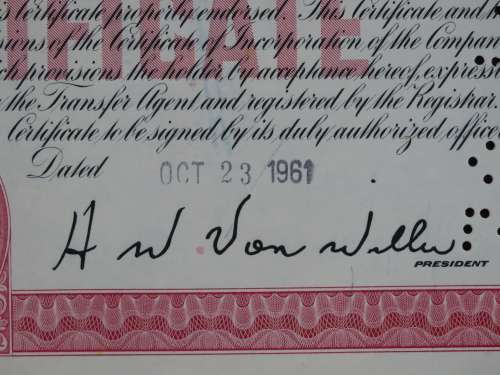 s Certificate properly endorsed. This Certificate and
sions of the Certificate of Incorporation of the Company
ch provisions the holder by acceptance hereof, express
the Transfer Agent and registered by the Registrar.
Certificate to be signed by its duly authorized office
Dated OCT 23 1961
H W Van Weller
PRESIDENT